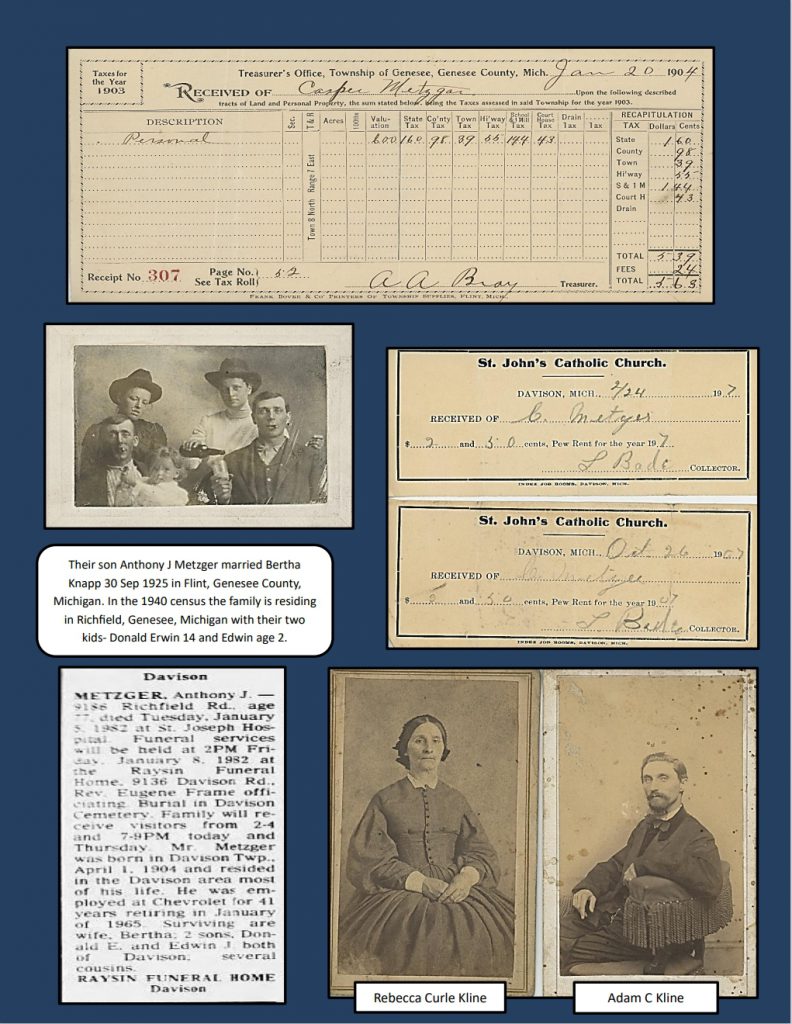 Taxes for
the Year
1903
Treasurer's Office, Township of Genesee, Genesee County, Mich. Jan 20 1904
RECEIVED OF Casper Metzgar Upon the following described
tracts of Land and Personal Property, the sum stated below, being the Taxes assessed in said Township for the year 1903.
DESCRIPTION Sec. T & R Acres 100ths Valu-ation State Tax Co'nty Tax Town Tax Hi'way Tax School & 1 Mill Tax Court House Tax Drain Tax Tax
Personal 600 160 98 39 55 144 43
Town 8 North Range 7 East
RECAPITULATION
TAX Dollars Cents
State 1 60
County 98
Town 39
Hi'way 55
S & 1 M 1 44
Court H 43
Drain
TOTAL 5 39
FEES 24
TOTAL 5 63
Receipt No. 307 Page No. 52
See Tax Roll
A A Bray Treasurer.
FRANK DOVER & CO PRINTERS OF TOWNSHIP SUPPLIES, FLINT, MICH.
St. John's Catholic Church.
DAVISON, MICH. 2/24 1907
RECEIVED OF C. Metzger
$ 2 and 50 cents, Pew Rent for the year 1907
L Bade COLLECTOR.
INDEX JOB ROOMS, DAVISON, MICH.
St. John's Catholic Church.
DAVISON, MICH., Oct 26 1907
RECEIVED OF C. Metzger
$ and 50 cents, Pew Rent for the year 1907
L Bade COLLECTOR.
INDEX JOB ROOMS, DAVISON, MICH.
Their son Anthony J Metzger married Bertha
Knapp 30 Sep 1925 in Flint, Genesee County,
Michigan. In the 1940 census the family is residing
in Richfield, Genesee, Michigan with their two
kids- Donald Erwin 14 and Edwin age 2.
Davison
METZGER, Anthony J. —
9186 Richfield Rd., age
77, died Tuesday, January
5, 1982 at St. Joseph Hos-
pital. Funeral services
will be held at 2PM Fri-
day, January 8, 1982 at
the Raysin Funeral
Home, 9136 Davison Rd.,
Rev. Eugene Frame offi-
ciating. Burial in Davison
Cemetery. Family will re-
ceive visitors from 2-4
and 7-9PM today and
Thursday. Mr. Metzger
was born in Davison Twp.,
April 1, 1904 and resided
in the Davison area most
of his life. He was em-
ployed at Chevrolet for 41
years retiring in January
of 1965. Surviving are
wife, Bertha; 2 sons, Don-
ald E. and Edwin J. both
of Davison; several
cousins.
RAYSIN FUNERAL HOME
Davison
Rebecca Curle Kline
Adam C Kline